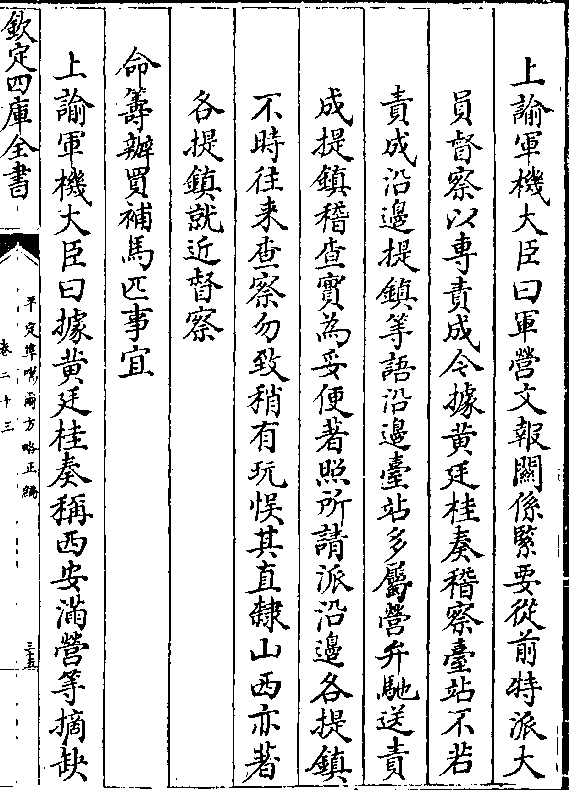 上諭軍機大臣曰軍營文報關係緊要從前特派大
員督察以專責成今據黃廷桂奏稽察臺站不若
責成沿邊提鎮等語沿邊臺站多屬營弁馳送責
成提鎮稽查實為妥便著照所請派沿邊各提鎮
不時往來查察勿致稍有玩悞其直隸山西亦著
各提鎮就近督察
命籌辦買補馬匹事宜
上諭軍機大臣曰據黃廷桂奏稱西安滿營等摘缺
欽定四庫全書
平定準噶爾方略正編
卷二十三
三十五